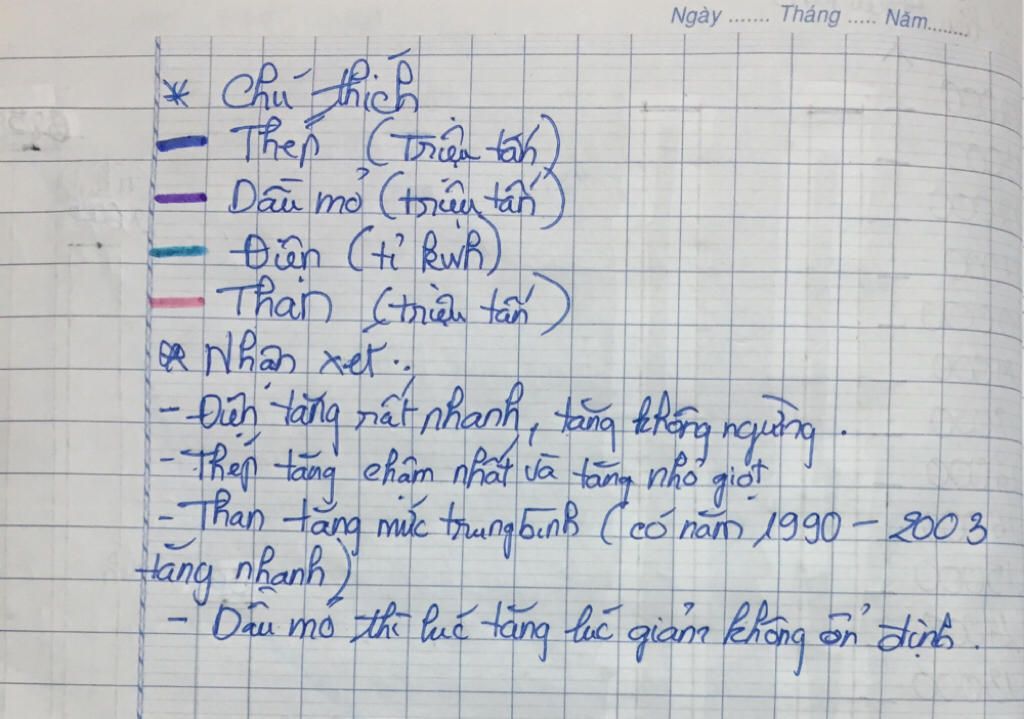 Ngày ....... Tháng ..... Năm........
* Chú thích
Thép (Triệu tấn)
Dầu mỏ (triệu tấn)
Điện (tỉ kwh)
Than (triệu tấn)
* Nhận xét:
- Điện tăng rất nhanh, tăng không ngừng.
- Thép tăng chậm nhất và tăng nhỏ giọt
- Than tăng mức trung bình (có năm 1990 - 2003
tăng nhanh)
- Dầu mỏ thì lúc tăng lúc giảm không ổn định.